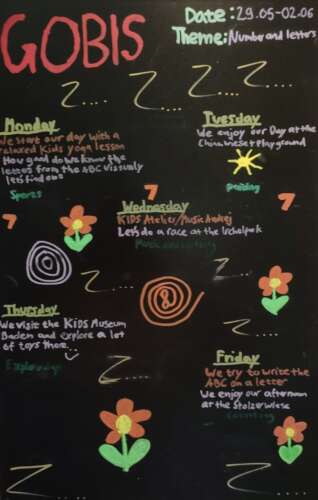 GOBIS
Date: 29.05-02.06
Theme: Number and letters
Monday
We start our day with a
relaxed Kids yoga lesson
How good do we know the
letters from the ABC visually
let's find out
Sports
Tuesday
We enjoy our Day at the
Chinawiese + Playground
7
7
Wednesday
KIDS Atelier/Music
Let's do a race at the Irchelpark
Music and
8
Thursday
We visit the KIDS Museum
Baden and explore a lot
of toys there
Friday
We try to write the
ABC on a letter
We enjoy our afternoon
at the Stolzewiese